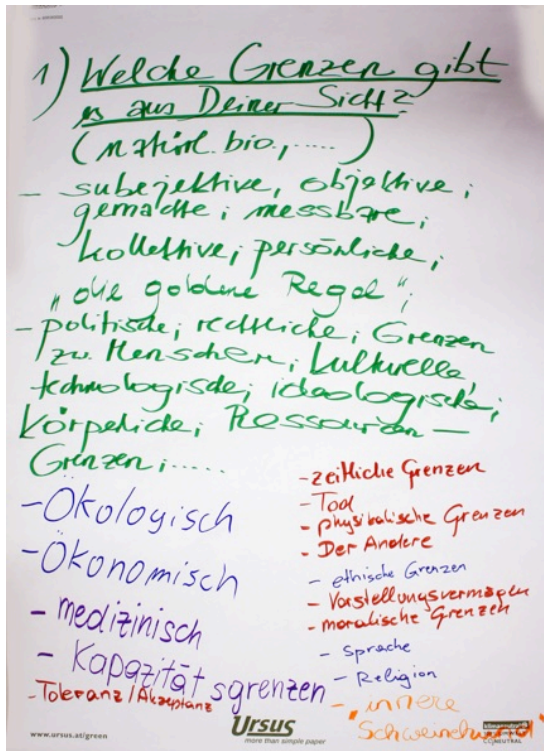 1) Welche Grenzen gibt
es aus Deiner Sicht?
(natürl. bio., .....)
– subejektive, objektive;
gemachte; messbare;
kollektive; persönliche;
„die goldene Regel";
– politische; rechtliche; Grenzen
zw. Menschen; kulturelle,
technologische; ideologische;
körperliche; Ressourcen –
Grenzen; .....
- Ökologisch
- Ökonomisch
- medizinisch
- Kapazitätsgrenzen
- Toleranz / Akzeptanz
- zeitliche Grenzen
- Tod
- physikalische Grenzen
- Der Andere
- ethische Grenzen
- Vorstellungsvermögen
- moralische Grenzen
- Sprache
- Religion
- "innere
Schweinehund"
www.ursus.at/green
Ursus
more than simple paper